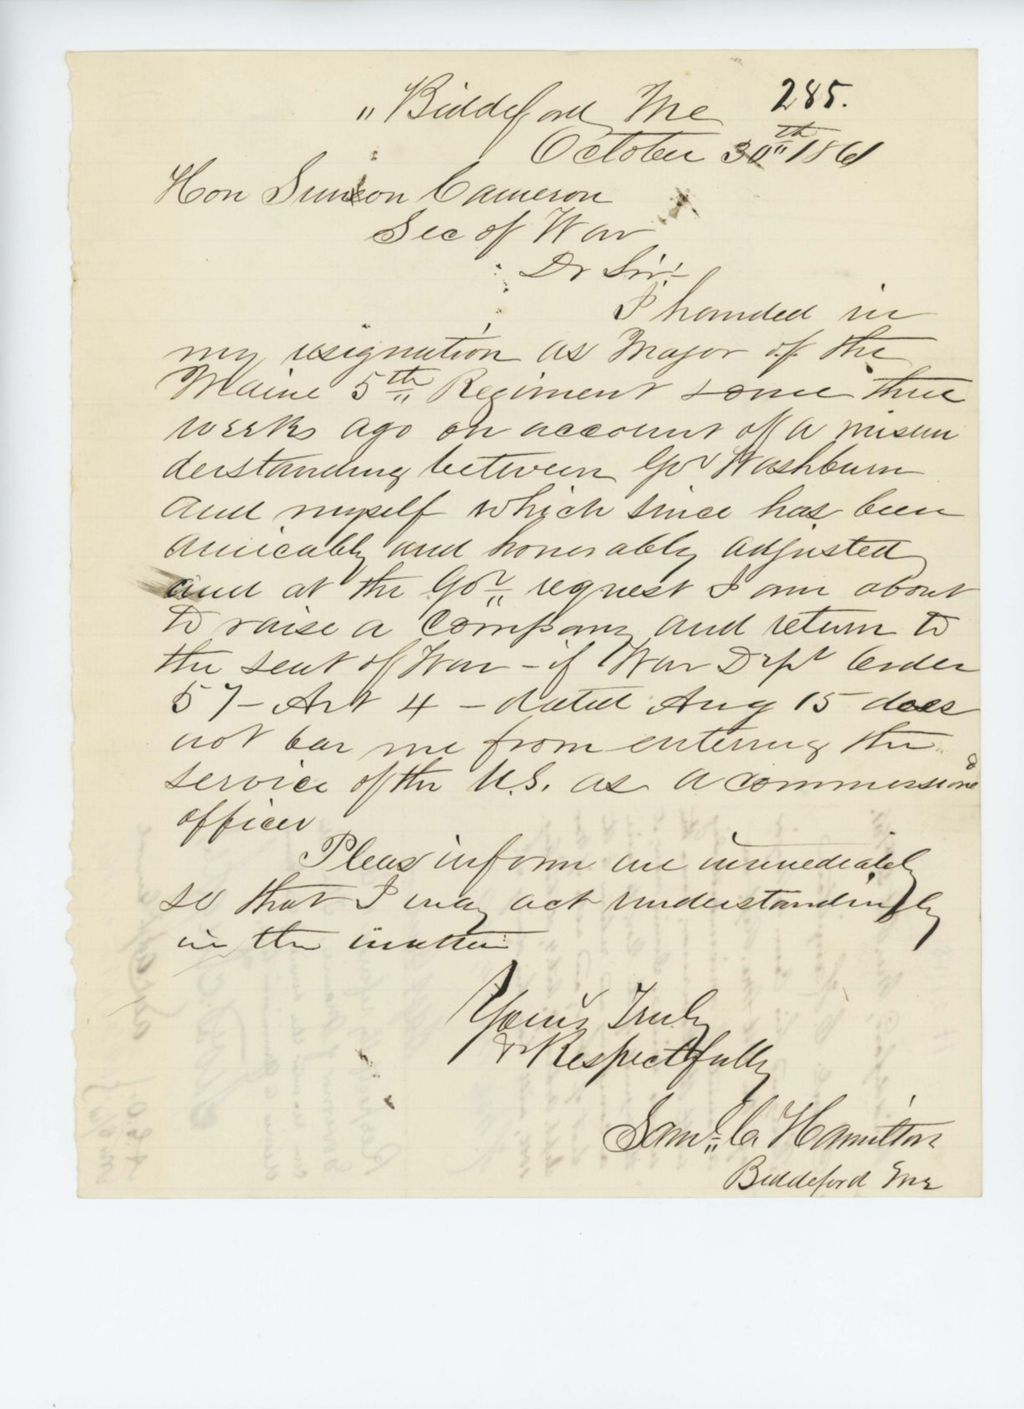 " Biddeford Me 285.
October 30th" 1861
Hon Simeon Cameron
Sec of War
Dr Sir:
I handed in
my resignation as Major of the
Maine 5th Regiment some three
weeks ago on account of a misun
derstanding between Gov Washburn
and myself which since has been
amicably and honorably adjusted
and at the Govr request I am about
to raise a Company and return to
the seat of War - if War Dept Order
57 - Art 4 - dated Aug 15 does
not bar me from entering the
service of the U.S. as a commissioned
officer
Pleas inform me immediately
so that I may act understandingly
in the matter
Yours Truly
& Respectfully
Saml C. Hamilton
Biddeford Me